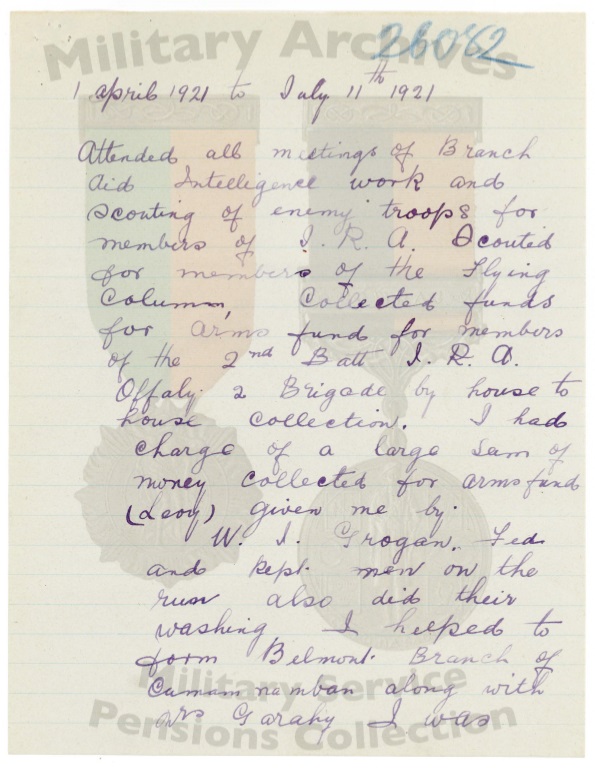 Military Archives
26082
1 april 1921 to July 11th 1921
Attended all meetings of Branch
Aid Intelligence work and
scouting of enemy troops for
members of I. R. A. Scouted
for members of the Flying
Column, Collected funds
for arms fund for members
of the 2nd Batt I. R. A.
Offaly. 2 Brigade by house to
house collection. I had
charge of a large sum of
money collected for arms fund
(Levy) given me by.
W. I. Grogan. Fed
and kept men on the
run also did their
washing I helped to
form Belmont. Branch of
Cumam namban along with
Mrs Garahy I was
Military Service
Pensions Collection